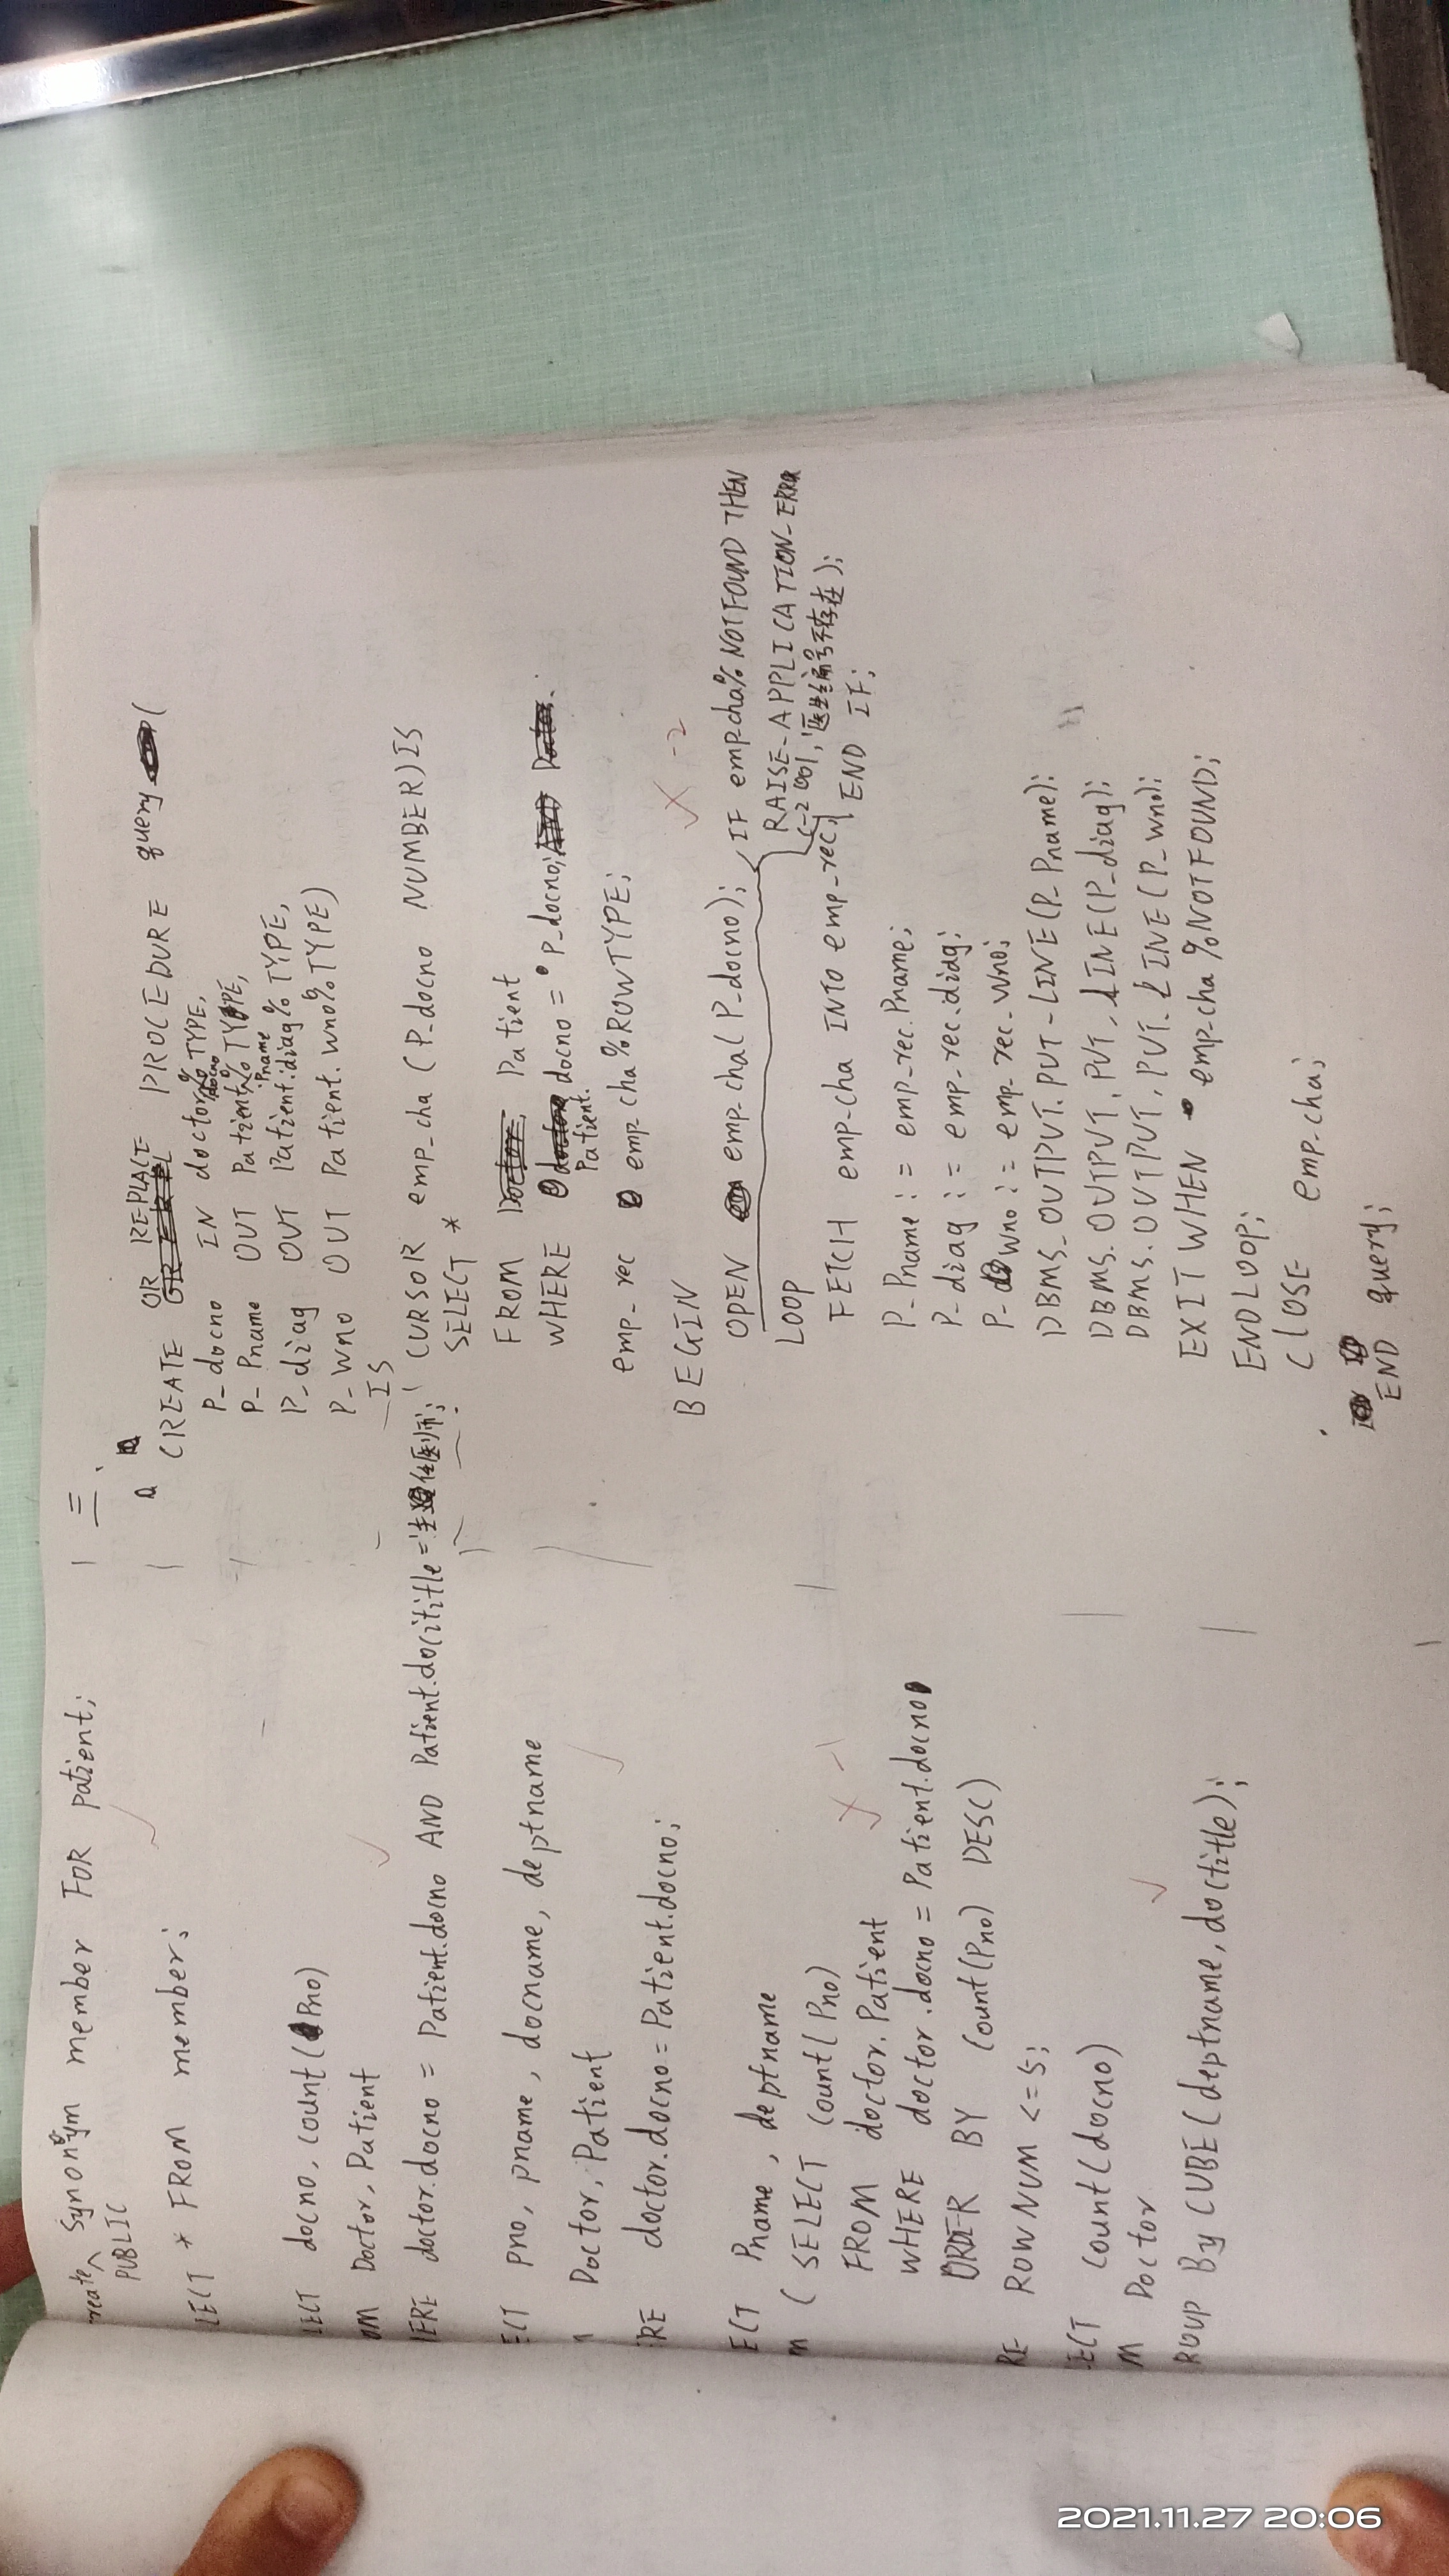 reate Synonym member FOR patient;
PUBLIC
LECT * FROM member;
LECT docno, count(Pno)
OM Doctor, Patient
ERE doctor.docno = Patient.docno AND Patient.docititle = '主任医师';
ECT pno, pname, docname, deptname
Doctor, Patient
RE doctor.docno = Patient.docno;
ECT Pname, deptname
m ( SELECT count( Pno)
FROM doctor. Patient
WHERE doctor.docno = Patient.docno
ORDER BY Count(Pno) DESC)
RE ROWNUM <= 5;
LECT count(docno)
M Doctor
ROUP By CUBE(deptname, doctitle);
× -1
二、
CREATE OR REPLACE PROCEDURE query (
P_docno IN doctor.docno%TYPE,
P_Pname OUT Patient.Pname%TYPE,
P_diag OUT Patient.diag%TYPE,
P_wno OUT Patient.wno%TYPE)
IS
CURSOR emp_cha (P_docno NUMBER) IS
SELECT *
FROM Patient
WHERE Patient.docno = P_docno;
emp_rec emp_cha%ROWTYPE;
BEGIN
× -2
OPEN emp_cha(P_docno);
IF emp_cha%NOTFOUND THEN
RAISE_APPLICATION_ERROR
(-2001, '医生编号不存在);
END IF;
LOOP
FETCH emp_cha INTO emp_rec;
P_Pname := emp_rec.Pname;
P_diag := emp_rec.diag;
P_wno := emp_rec.wno;
DBMS_OUTPUT.PUT_LINE(P_Pname);
DBMS.OUTPUT.PUT_LINE(P_diag);
DBMS.OUTPUT.PUT_LINE(P_wno);
EXIT WHEN emp_cha %NOTFOUND;
END LOOP;
CLOSE emp_cha;
END query;
2021.11.27 20:06